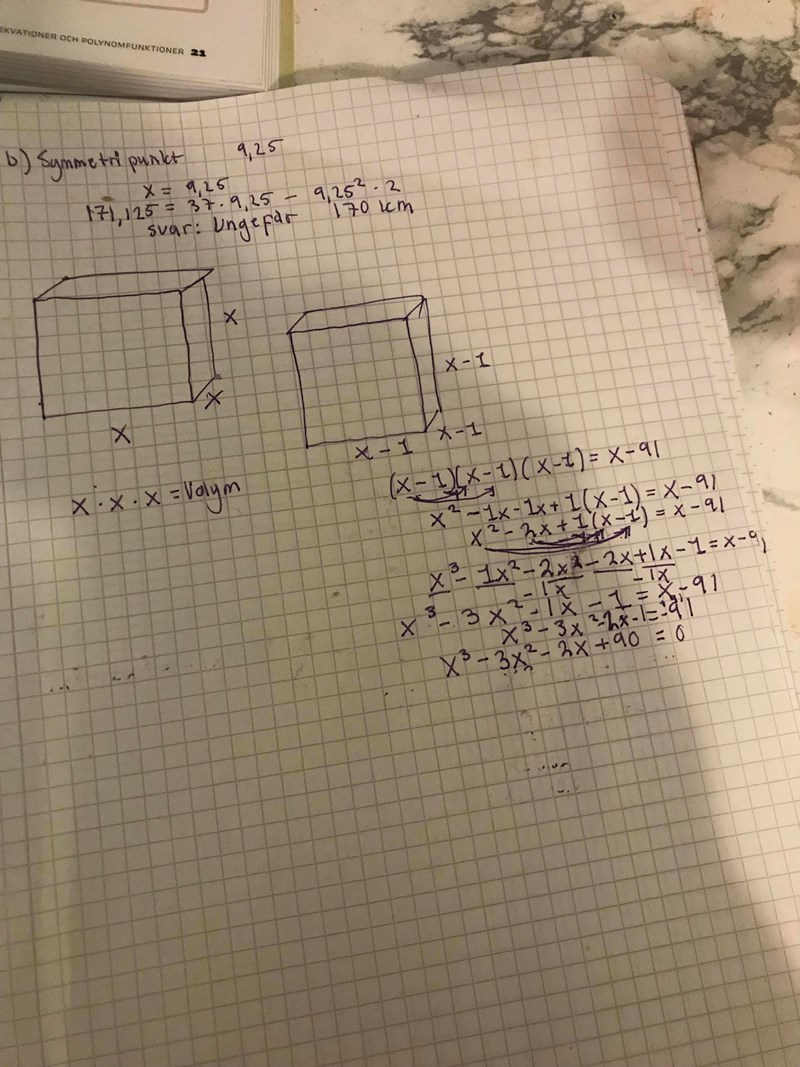 EKVATIONER OCH POLYNOMFUNKTIONER 21
b) Symmetri punkt 9,25
x = 9,25
171,125 = 37 · 9,25 - 9,25² · 2
svar: Ungefär 170 kcm
x
x
x
x · x · x = Volym
x-1
x-1
x-1
(x-1)(x-1)(x-1) = x-91
x² - 1x - 1x + 1(x-1) = x-91
x² - 2x + 1(x-1) = x-91
x³ - 1x² - 2x² - 2x + 1x - 1 = x-91
-1x -1x
x³ - 3x² - 1x - 1 = x-91
x³ - 3x² - 2x - 1 = -91
x³ - 3x² - 2x + 90 = 0